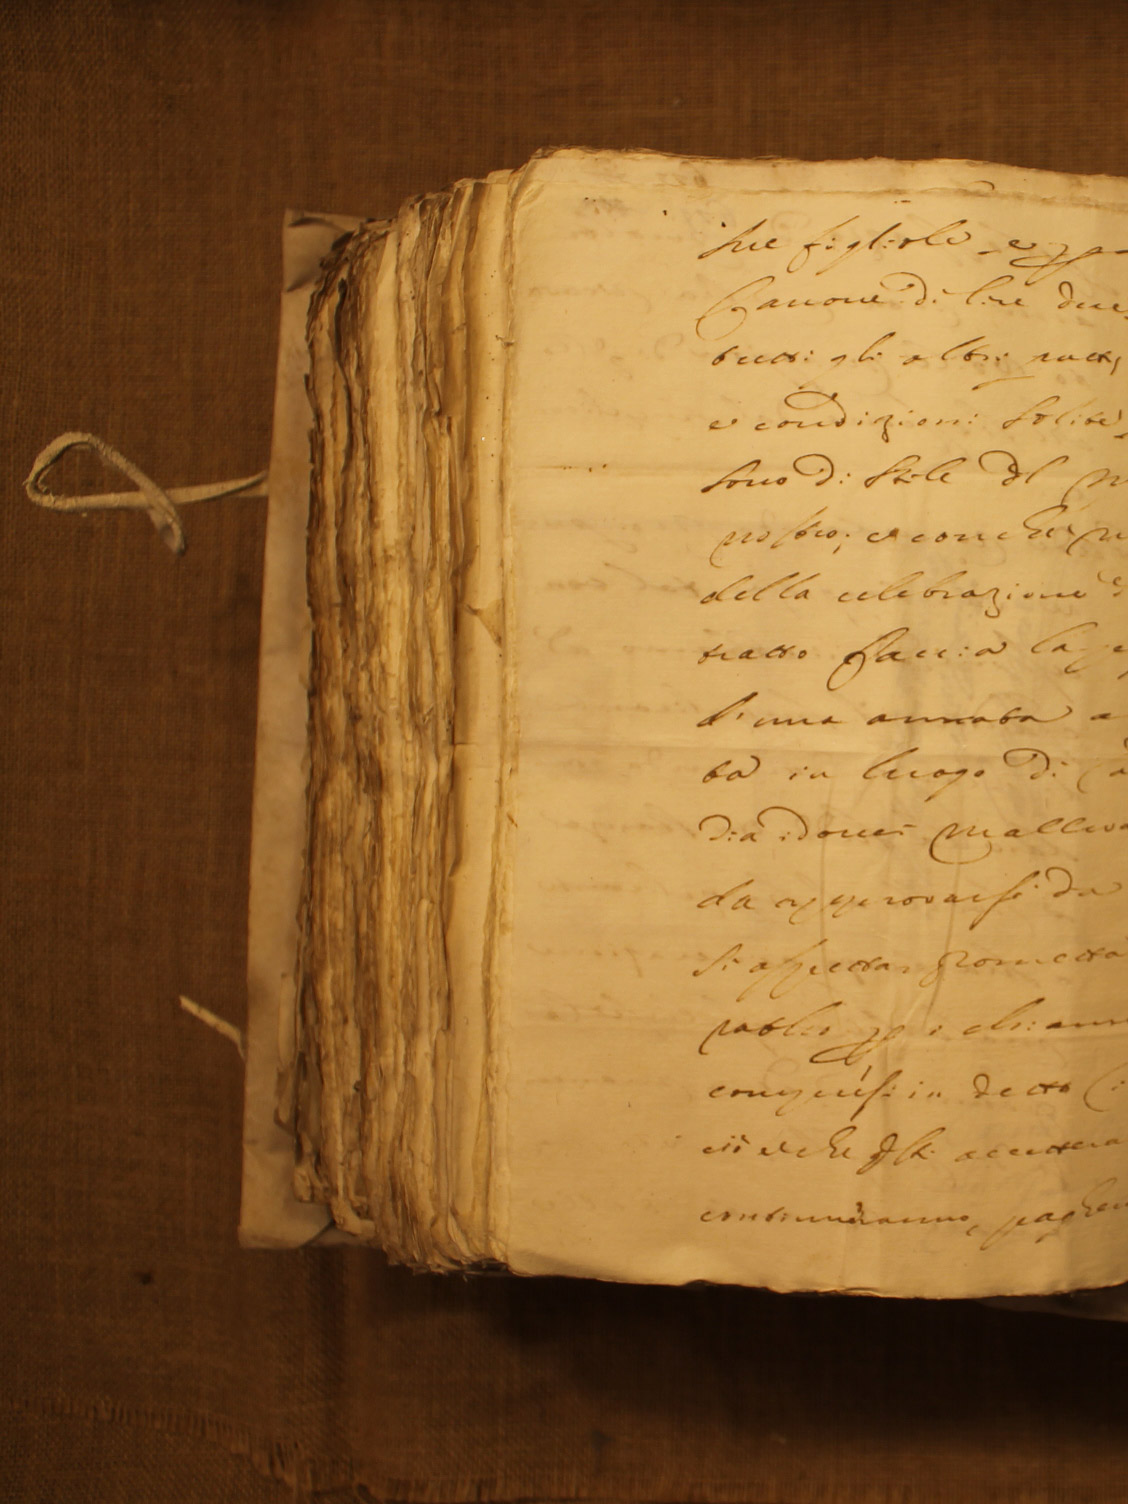 sue figliole, e p
Canone di lire due
tutti gli altri patti
e condizioni solite,
sono di stile del M
nostro; e con che
della celebrazione d
tratto faccia la
d'una annata a
ta in luogo di
dia idonei malleva
da approvarsi da
si aspetta, prometta
i chi:
compresi in detto
e che accettera
continueranno, paghera